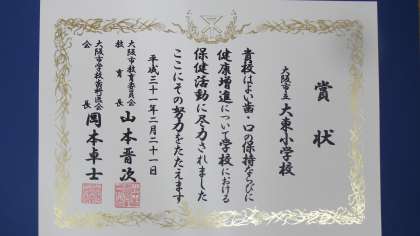 賞状
大阪市立 大東小学校
貴校はよい歯・口の保持ならびに
健康増進について学校における
保健活動に尽力されました
ここにその努力をたたえます
平成三十一年二月二十一日
大阪市教育委員会
教育長 山本晋次
大阪市学校歯科医会
会長 岡本卓士